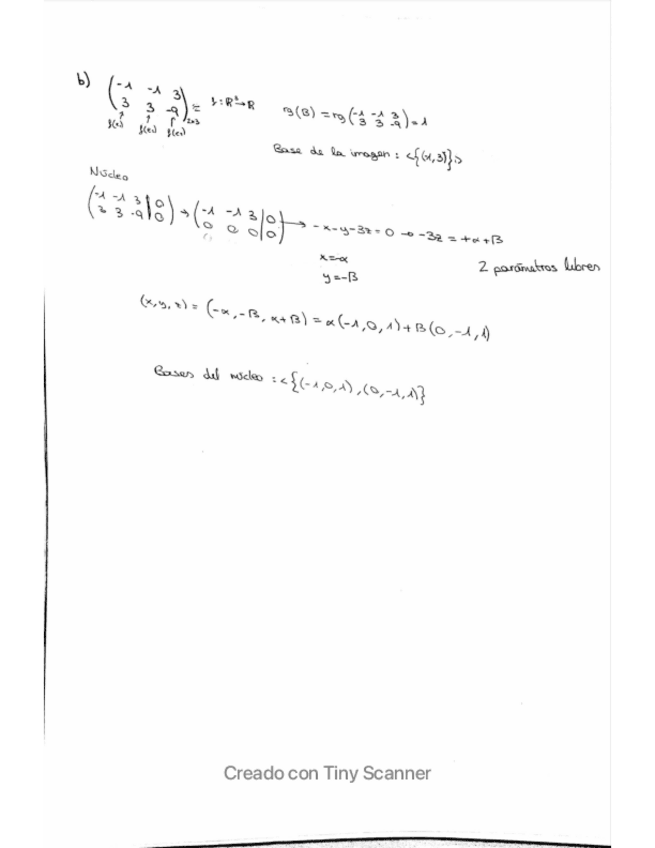 b) (-1 -1 3
3 3 -9)2x3 = f: R³→R rg(B) = rg(-1 -1 3
3 3 -9) = 1
f(e₁) f(e₂) f(e₃)
Base de la imagen: <{(1,3)}>
Núcleo
(-1 -1 3 | 0
3 3 -9 | 0) → (-1 -1 3 | 0
0 0 0 | 0) → -x-y-3z=0 → -3z = +α+β
x=-α
y=-β
2 parámetros libres
(x,y,z) = (-α, -β, α+β) = α(-1,0,1)+β(0,-1,1)
Bases del núcleo: <{(-1,0,1),(0,-1,1)}
Creado con Tiny Scanner